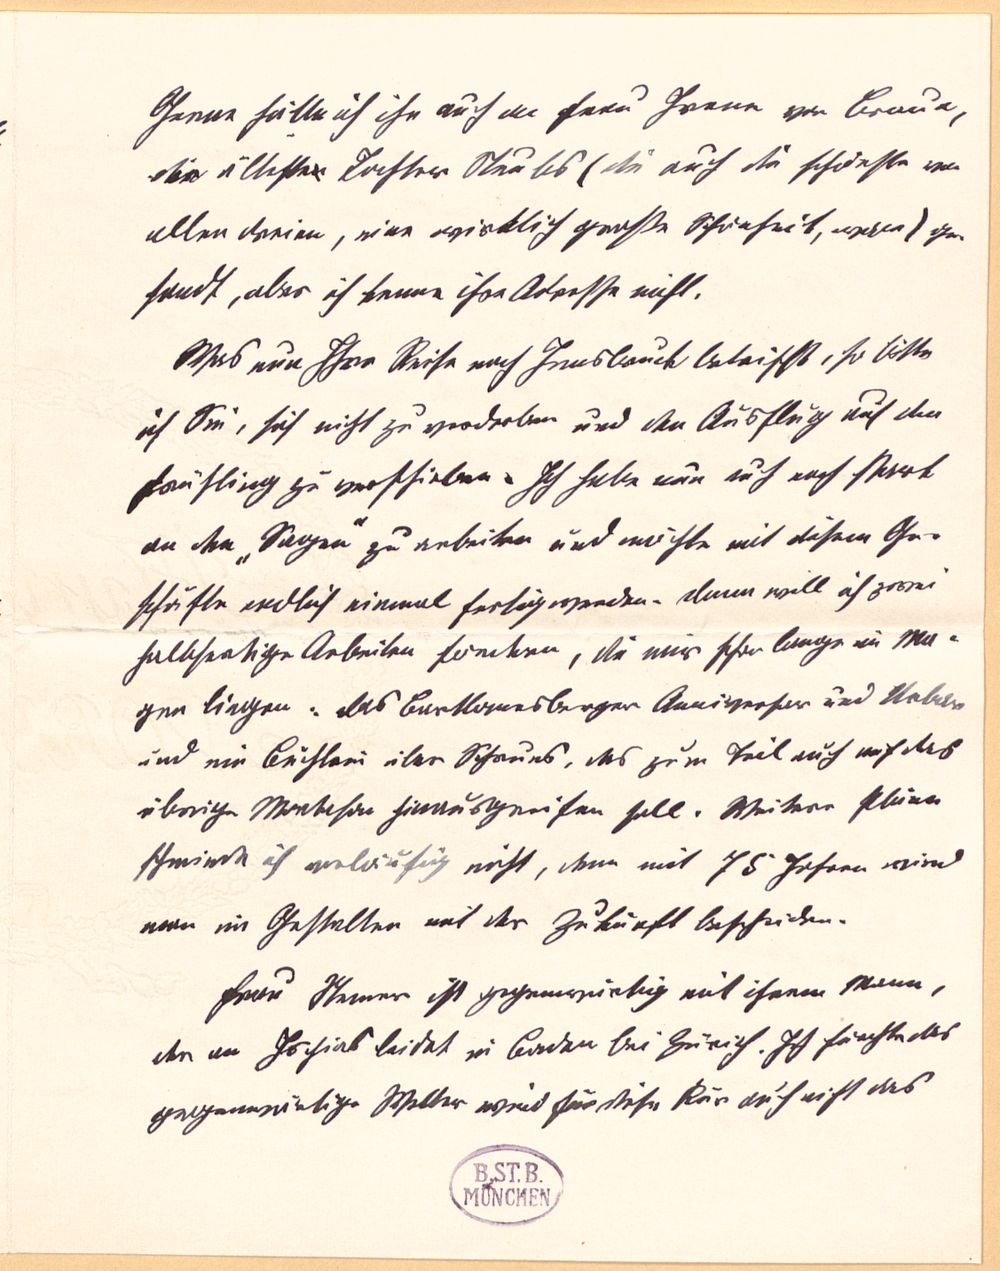 Gerne hätte ich ihn auch an Frau Irene von Braun,
die älteste Tochter Steubs (die auch die schönste von
allen dreien, eine wirklich große Schönheit, war) ge-
sandt, aber ich kenne ihre Adresse nicht.
Was nun Ihre Reise nach Innsbruck betrifft, so bitte
ich Sie, sich nicht zu und den Ausflug auf den
Frühling zu verschieben. Ich habe nun auch noch stark
an den „Sagen“ zu arbeiten und möchte mit diesem Ge-
schäfte endlich einmal fertig werden. Dann will ich zwei
halbfertige Arbeiten fördern, die mir schon lange im Ma-
gen liegen: das Bartlomesberger Anniversar und Urbar
und ein Büchlein über Schruns, das zum Teil auch auf das
übrige Montafon hinausgreifen soll. Weitere Pläne
schmiede ich vorläufig nicht, denn mit 75 Jahren wird
man im Gestalten mit der Zukunft bescheiden.
Frau Hemer ist gegenwärtig mit ihrem Mann,
der an Ischias leidet in Baden bei Zürich. Ich fürchte das
gegenwärtige Wetter wird für diese Kur auch nicht das
B.ST.B.
MÜNCHEN